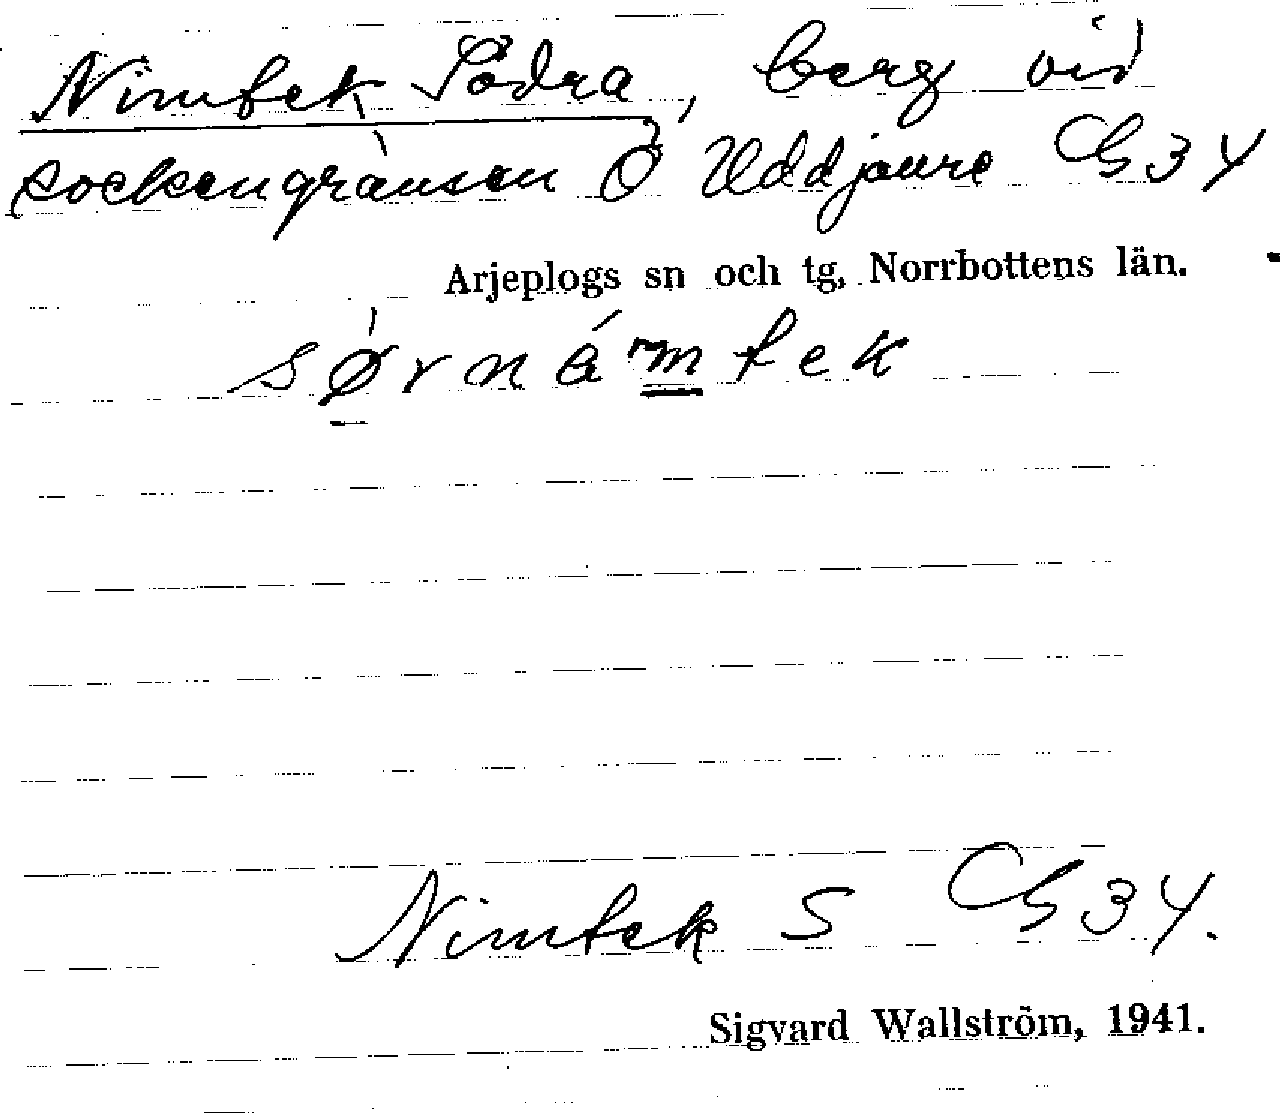 Nimtek Södra, berg vid
sockengränsen Ö Uddjaure G34
Arjeplogs sn och tg, Norrbottens län.
sørnámtek
Nimtek S G34.
Sigvard Wallström, 1941.